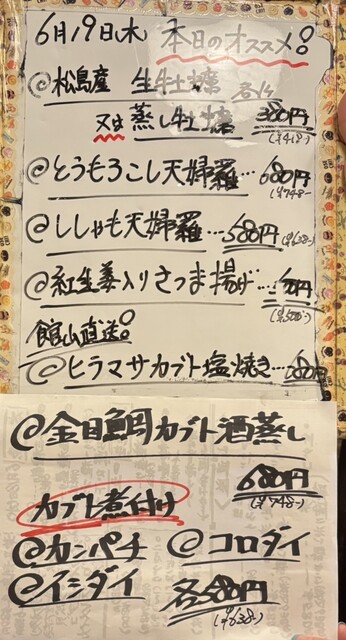 6月19日(木) 本日のオススメ!
@松島産 生牡蠣 各1ケ
又は 蒸し牡蠣 380円
(¥418-)
@とうもろこし天婦羅…680円
(¥748-)
@ししゃも天婦羅…580円
(¥638-)
@紅生姜入りさつま揚げ…
館山直送!
@ヒラマサカブト塩焼き…
@金目鯛カブト酒蒸し
680円
(¥748-)
カブト煮付け
@カンパチ @コロダイ
@イシダイ 各580円
(¥638-)